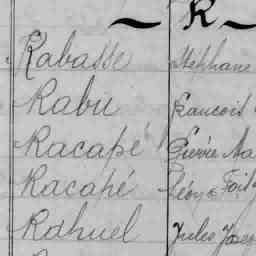 R
Rabasse Stéphane
Rabu Francois
Racapé Pierre Ma
Racapé Léon
Rahuel Jules Jose